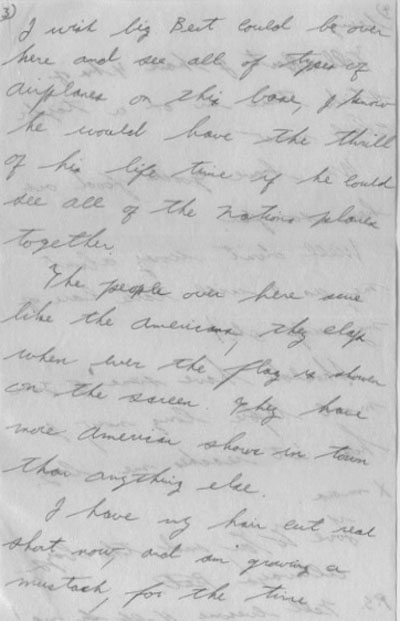 3)
I wish big Bert could be over
here and see all of types of
airplanes on this base, I know
he would have the thrill
of his life time if he could
see all of the nations planes
together.
The people over here sure
like the americans, they clap
when ever the flag is shown
on the screen. They have
more american shows in town
than anything else.
I have my hair cut real
shot now, and am growing a
mustash, for the time